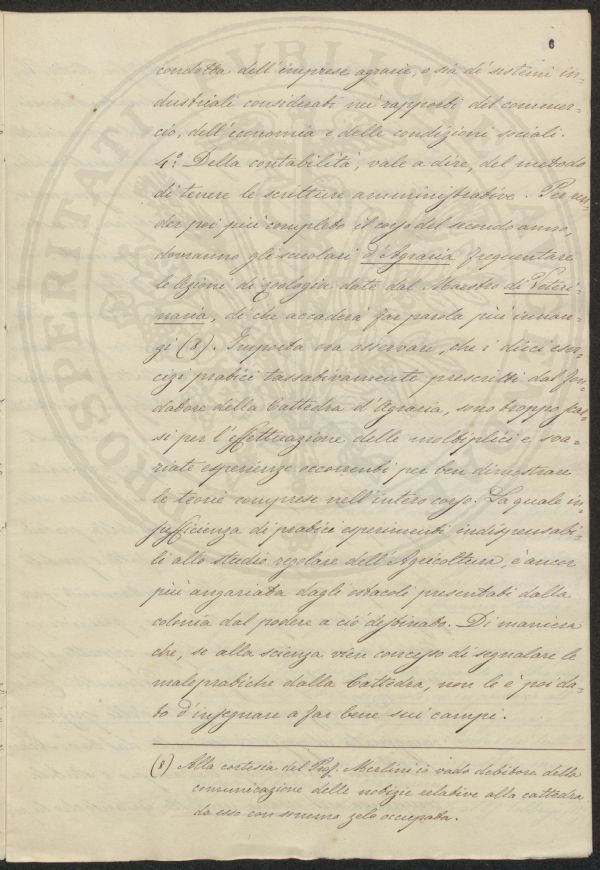 6
condotta dell'imprese agrarie, o sia de' sistemi in-
dustriali considerati nei rapporti del commer-
cio, dell'economia e delle condizioni sociali.
4.° Della contabilità, vale a dire, del metodo
di tenere le scritture amministrative. Per ren-
der poi più completo il corso del secondo anno,
dovranno gli scuolari d'Agraria frequentare
le lezioni di zoologia date dal Maestro di Veteri-
naria, di che accaderà far parola più innan-
zi (8). Importa ora osservare, che i dieci eser-
cizi pratici tassativamente prescritti dal fon-
datore della Cattedra d'Agraria, sono troppo scar-
si per l'effettuazione delle moltiplici e sva-
riate esperienze occorrenti per ben dimostrare
le teorie comprese nell'intero corso. La quale in-
sufficienza di pratici esperimenti indispensabi-
li allo studio regolare dell'Agricoltura, è ancor
più angariata dagli ostacoli presentati dalla
colonia dal podere a ciò destinato. Di maniera
che, se alla scienza vien concesso di segnalare le
male pratiche dalla Cattedra, non le è poi da-
to d'insegnare a far bene sui campi.
(8) Alla cortesia del Prof. Merlini io vado debitore della
comunicazione delle notizie relative alla cattedra
da esso con sommo zelo occupata.
PROSPERITATI PUBLICAE